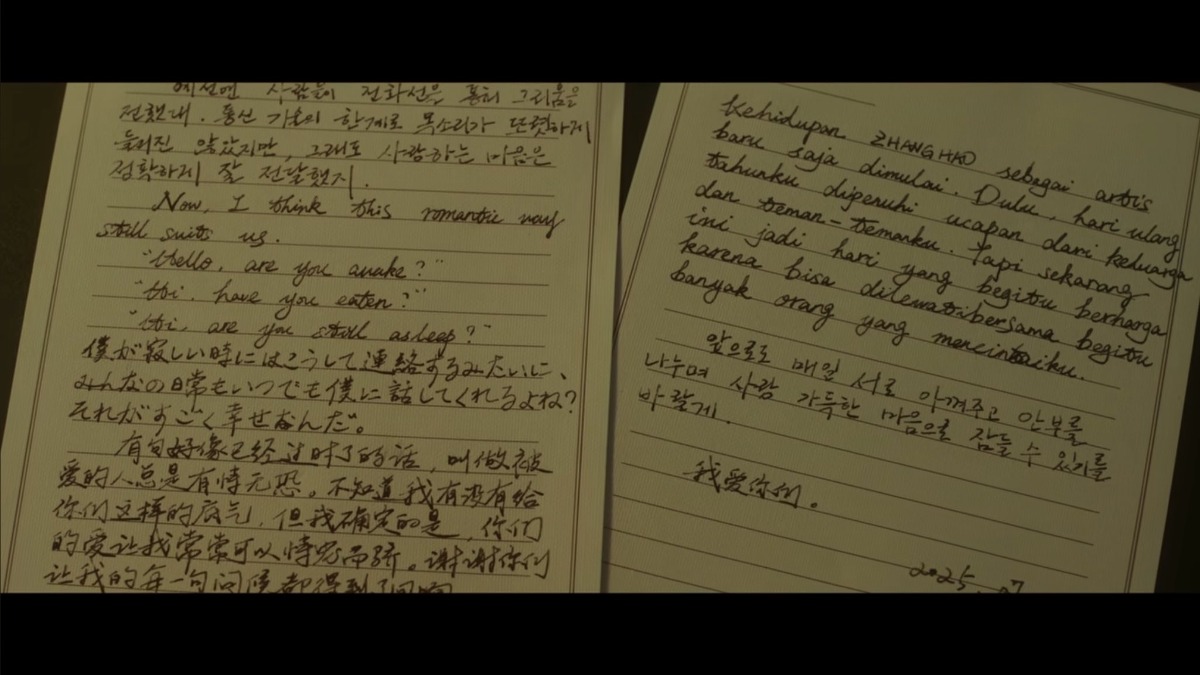 예전엔 사람들이 전화선을 통해 그리움을
전했대. 통신 기술의 한계로 목소리가 또렷하게
들리진 않았지만, 그래도 사랑하는 마음은
정확하게 잘 전달했지.
Now, I think this romantic way
still suits us.
"Hello, are you awake?"
"Hi, have you eaten?"
"Hi, are you still asleep?"
僕が寂しい時にはこうして連絡するみたいに、
みんなの日常もいつでも僕に話してくれるよね?
それがすごく幸せなんだ。
有句好像已经过时了的话，叫做被
爱的人总是有恃无恐。不知道我有没有给
你们这样的底气，但我确定的是，你们
的爱让我常常可以恃宠而骄。谢谢你们
让我的每一句问候都得到了回响
Kehidupan ZHANGHAO sebagai artis
baru saja dimulai. Dulu, hari ulang
tahunku dipenuhi ucapan dari keluarga
dan teman-temanku. Tapi sekarang
ini jadi hari yang begitu berharga
karena bisa dilewatibersama begitu
banyak orang yang mencintaiku.
앞으로도 매일 서로 아껴주고 안부를
나누며 사랑 가득한 마음으로 잠들 수 있기를
바랄게.
我爱你们。
2025. 07